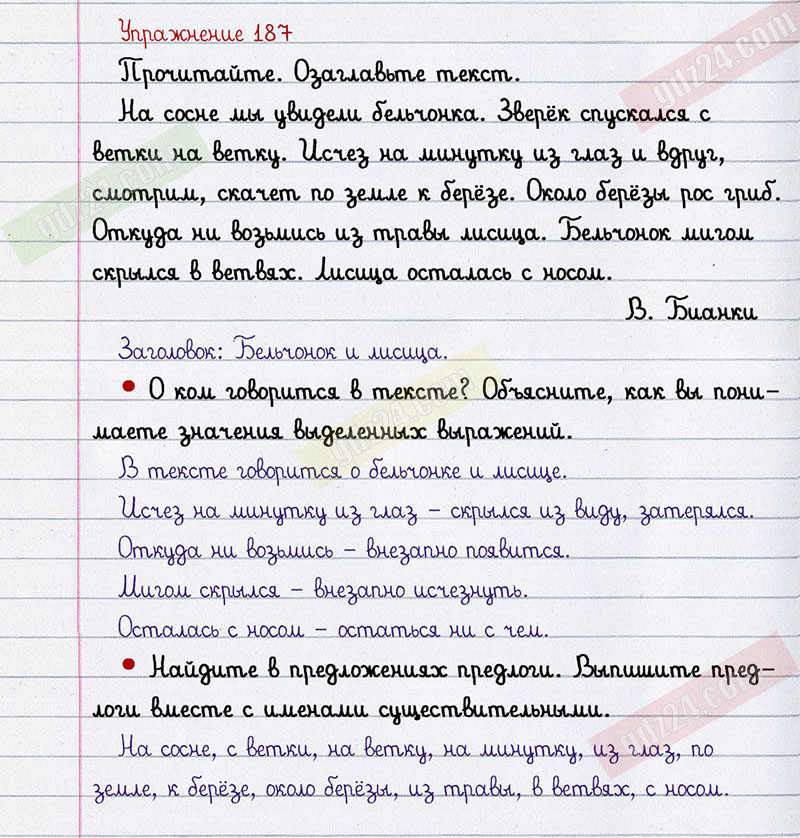 Упражнение 187
Прочитайте. Озаглавьте текст.
На сосне мы увидели бельчонка. Зверёк спускался с
ветки на ветку. Исчез на минутку из глаз и вдруг,
смотрим, скачет по земле к берёзе. Около берёзы рос гриб.
Откуда ни возьмись из травы лисица. Бельчонок мигом
скрылся в ветвях. Лисица осталась с носом.
В. Бианки
Заголовок: Бельчонок и лисица.
• О ком говорится в тексте? Объясните, как вы пони-
маете значения выделенных выражений.
В тексте говорится о бельчонке и лисице.
Исчез на минутку из глаз – скрылся из виду, затерялся.
Откуда ни возьмись – внезапно появится.
Мигом скрылся – внезапно исчезнуть.
Осталась с носом – остаться ни с чем.
• Найдите в предложениях предлоги. Выпишите пред-
логи вместе с именами существительными.
На сосне, с ветки, на ветку, на минутку, из глаз, по
земле, к берёзе, около берёзы, из травы, в ветвях, с носом.
gdz24.com
gdz24.com
gdz24.com
gdz24.com